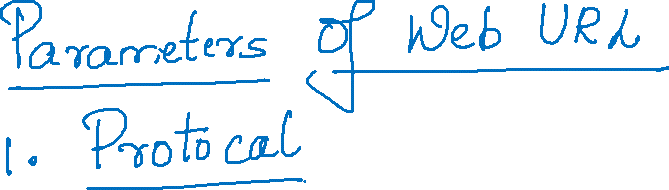 Parameters of Web URL
1. Protocal